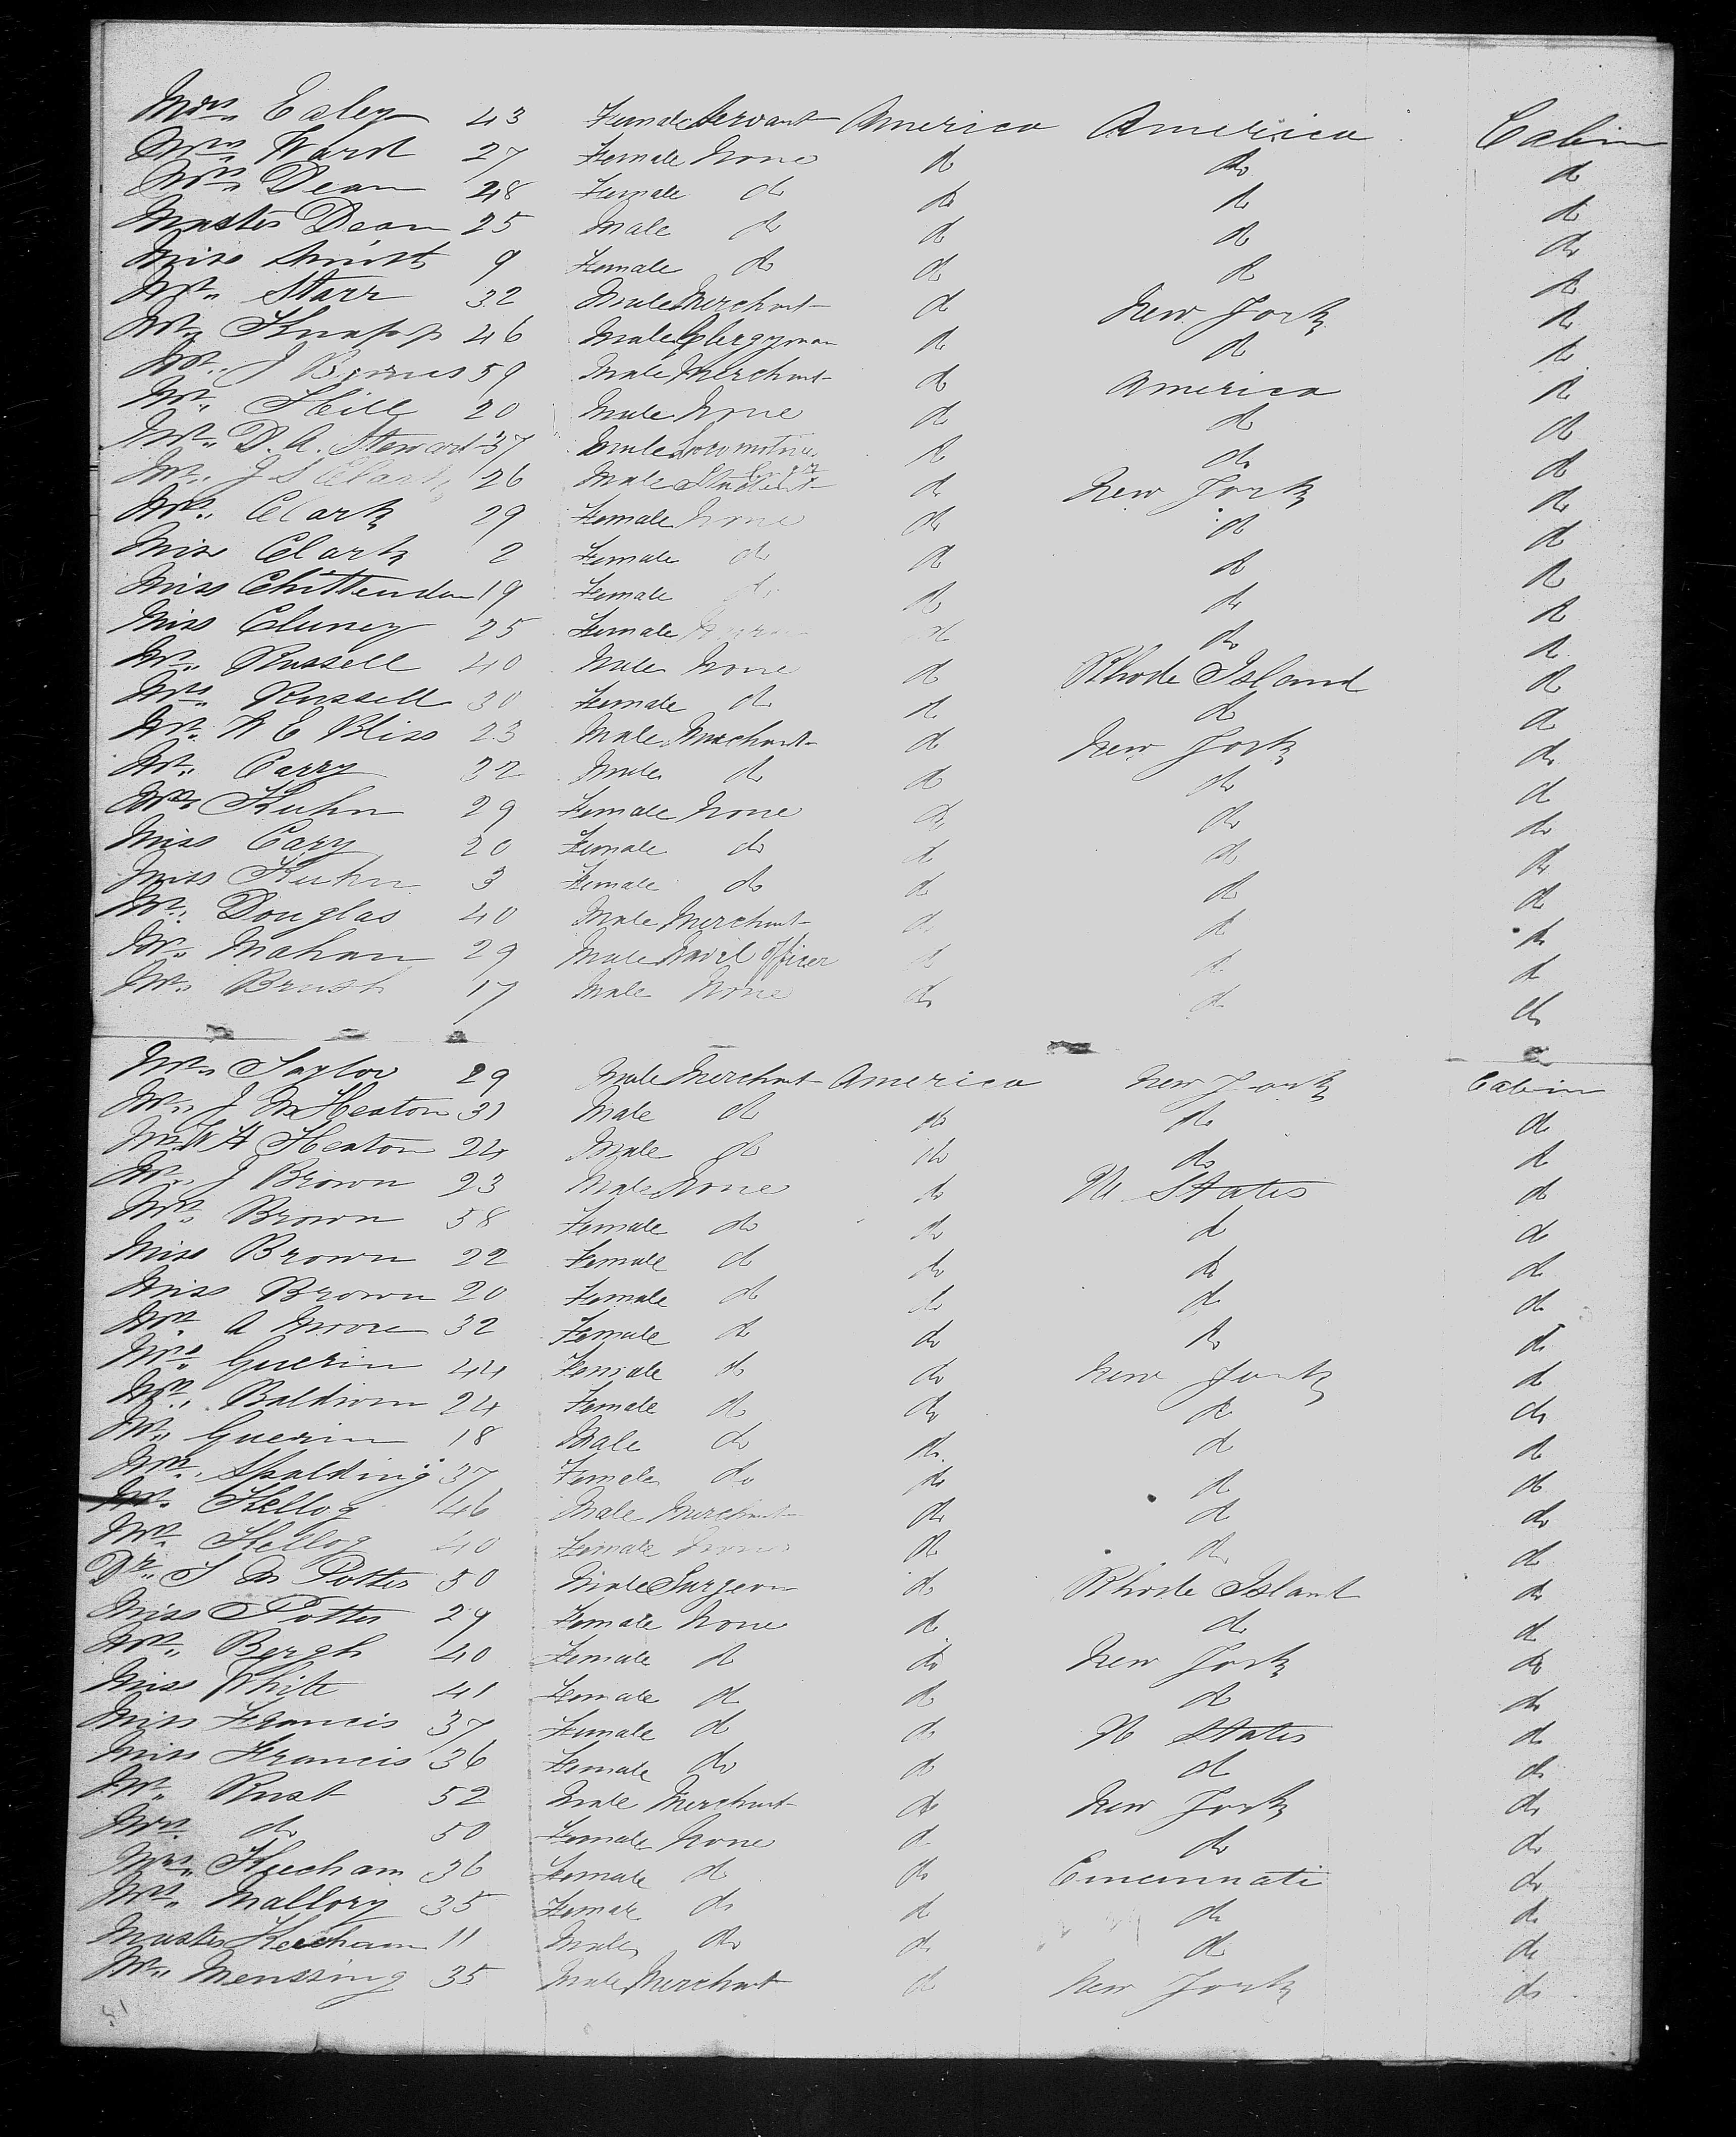 Mrs. Ealey 43 Female Servant America America Cabin
Mrs. Ward 27 Female None do do do
Mrs. Dean 28 Female do do do do
Master Dean 25 Male do do do do
Miss 9 Female do do do do
Mr. Starr 32 Male Merchant do New York do
Mr. Knapp 46 Male Clergyman do do do
Mr. J 59 Male Merchant do America do
Mr. Hill 20 Male None do do do
Mr. D. A. Steward 37 Male Locomotive do do do
Mr. J S Clark 26 Male Student do New York do
Mrs. Clark 29 Female None do do do
Miss Clark 2 Female do do do do
Miss Chittenden 19 Female do do do do
Miss Cluney 25 Female do do do
Mr. Russell 40 Male None do Rhode Island do
Mrs. Russell 30 Female do do do do
Mr. W E Bliss 23 Male Merchant do New York do
Mr. Carry 32 Male do do do do
Mrs Kuhn 29 Female None do do do
Miss Cary 20 Female do do do do
Miss Kuhn 3 Female do do do do
Mr. Douglas 40 Male Merchant do do do
Mr. Mahan 29 Male Navel Officer do do do
Mr. Brush 17 Male None do do do
Mr. Taylor 29 Male Merchant America New York Cabin
Mr. J M Heaton 31 Male do do do do
Mr. W H Heaton 24 Male do do do do
Mr. J Brown 23 Male None do U. States do
Mrs. Brown 58 Female do do do do
Miss Brown 22 Female do do do do
Miss Brown 20 Female do do do do
Mrs. A Moore 32 Female do do do do
Mrs. Guerin 44 Female do do New York do
Mrs. Baldwin 24 Female do do do do
Mr. Guerin 18 Male do do do do
Mrs. Spalding 37 Female do do do do
Mr. Kellog 46 Male Merchant do do do
Mrs. Kellog 40 Female None do do do
Dr. S M Potter 50 Male Surgeon do Rhode Island do
Miss Potter 29 Female None do do do
Mrs. Bergh 40 Female do do New York do
Miss White 41 Female do do do do
Miss Francis 37 Female do do U States do
Miss Francis 36 Female do do do do
Mr. Rust 52 Male Merchant do New York do
Mrs. do 50 Female None do do do
Mrs. Keecham 36 Female do do Cincinnati do
Mrs. Mallory 35 Female do do do do
Master Keecham 11 Male do do do do
Mr. Menssing 35 Male Merchant do New York do